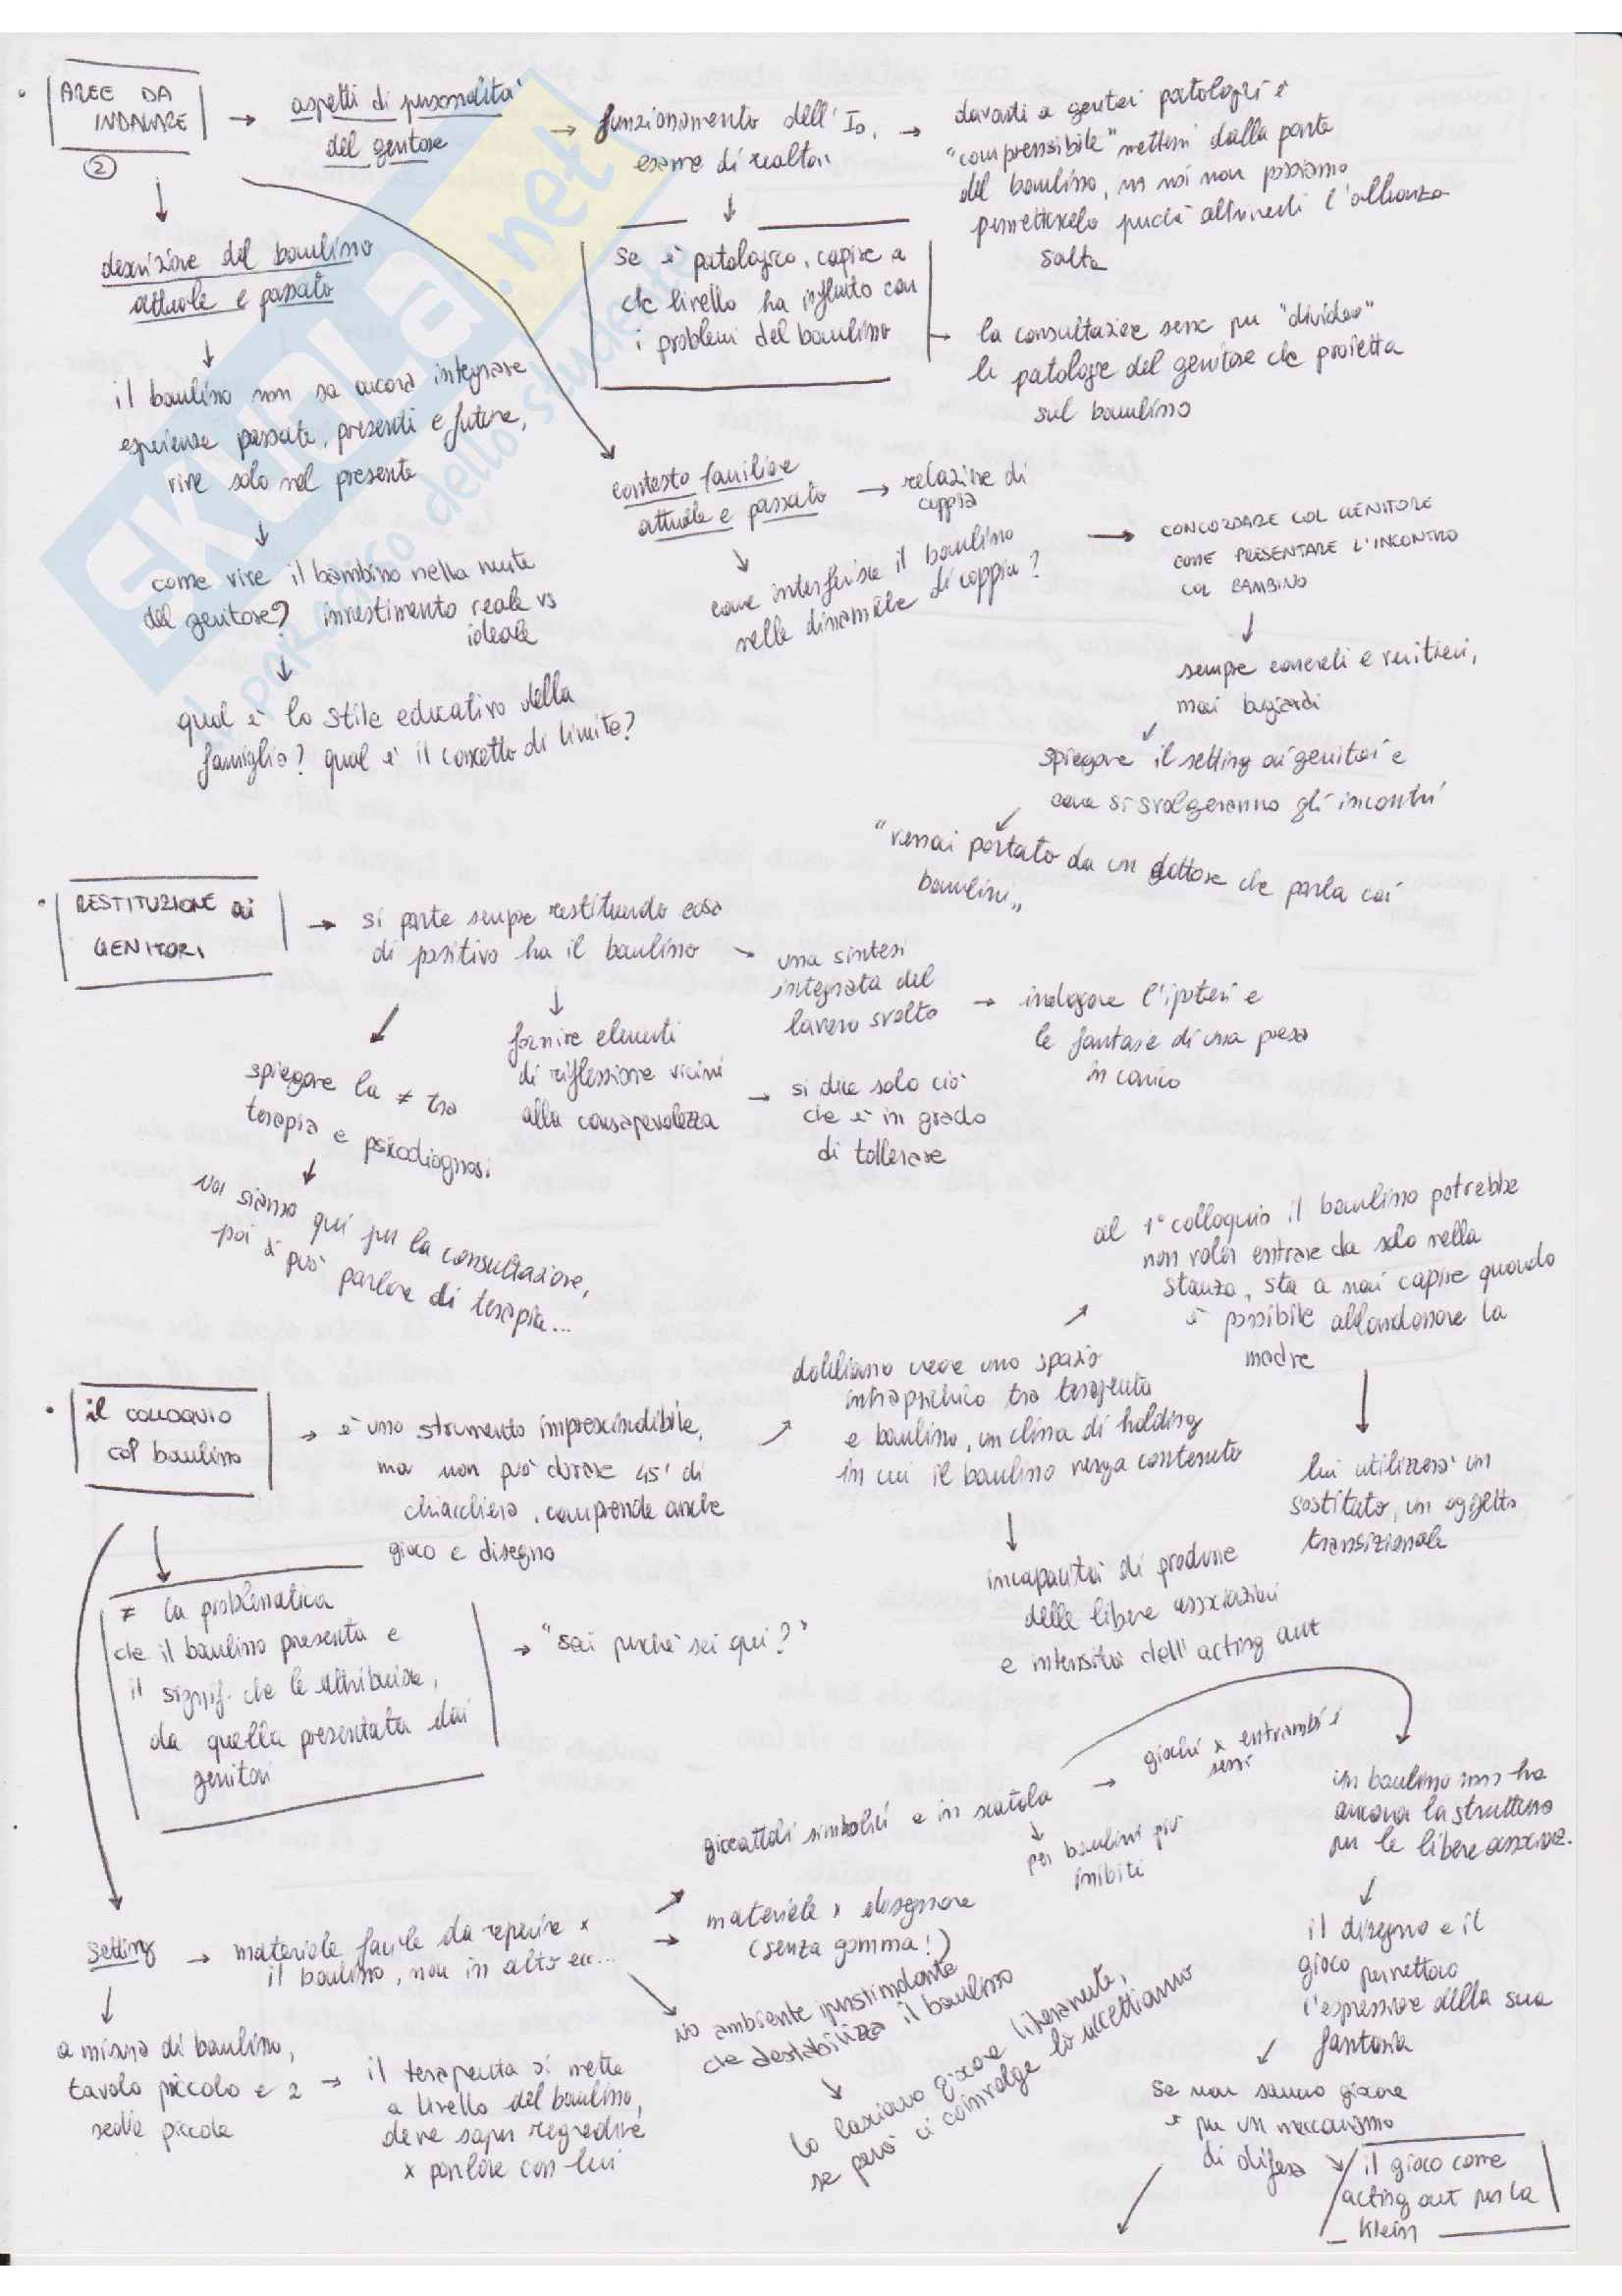 AREE DA
INDAGARE
②
aspetti di personalità
del genitore
funzionamento dell'Io,
esame di realtà
davanti a genitori patologici è
"comprensibile" mettersi dalla parte
del bambino, ma noi non possiamo
permettercelo perché altrimenti l'alleanza
salta
se è patologico, capire a
che livello ha influito con
i problemi del bambino
la consultazione serve per "dividere"
le patologie del genitore che proietta
sul bambino
descrizione del bambino
attuale e passato
il bambino non sa ancora integrare
esperienze passate, presenti e future,
vive solo nel presente
come vive il bambino nella mente
del genitore? investimento reale vs
ideale
qual è lo stile educativo della
famiglia? qual è il concetto di limite?
contesto familiare
attuale e passato
relazione di
coppia
come interferisce il bambino
nelle dinamiche di coppia?
CONCORDARE COL GENITORE
COME PRESENTARE L'INCONTRO
COL BAMBINO
sempre concreti e veritieri,
mai bugiardi
spiegare il setting ai genitori e
come si svolgeranno gli incontri
"verrai portato da un dottore che parla coi
bambini"
RESTITUZIONE ai
GENITORI
si parte sempre restituendo cosa
di positivo ha il bambino
una sintesi
integrata del
lavoro svolto
indagare l'ipotesi e
le fantasie di una presa
in carico
fornire elementi
di riflessione vicini
alla consapevolezza
si dice solo ciò
che è in grado
di tollerare
spiegare la ≠ tra
terapia e psicodiagnosi
noi siamo qui per la consultazione,
poi si può parlare di terapia...
il COLLOQUIO
col bambino
è uno strumento imprescindibile,
ma non può durare 45' di
chiacchiera, comprende anche
gioco e disegno
dobbiamo creare uno spazio
intrapsichico tra terapeuta
e bambino, un clima di holding
in cui il bambino venga contenuto
al 1° colloquio il bambino potrebbe
non voler entrare da solo nella
stanza, sta a noi capire quando
è possibile abbandonare la
madre
lui utilizzerà un
sostituto, un oggetto
transizionale
incapacità di produrre
delle libere associazioni
e intensità dell'acting out
≠ la problematica
che il bambino presenta e
il signif. che le attribuisce,
da quella presentata dai
genitori
"sai perché sei qui?"
giocattoli simbolici e in scatola
giochi x entrambi i
sessi
per bambini più
inibiti
un bambino non ha
ancora la struttura
per le libere associaz.
il disegno e il
gioco permettono
l'espressione della sua
fantasia
se non sanno giocare
è per un meccanismo
di difesa
il gioco come
acting out per la
Klein
setting
materiale facile da reperire x
il bambino, non in alto ecc...
materiale x disegnare
(senza gomma!)
no ambiente iperstimolante
che destabilizza il bambino
lo lasciamo giocare liberamente,
se però ci coinvolge lo accettiamo
a misura di bambino,
tavolo piccolo e 2
sedie piccole
il terapeuta si mette
a livello del bambino,
deve saper regredire
x parlare con lui
skuola.net
il portale dello studente